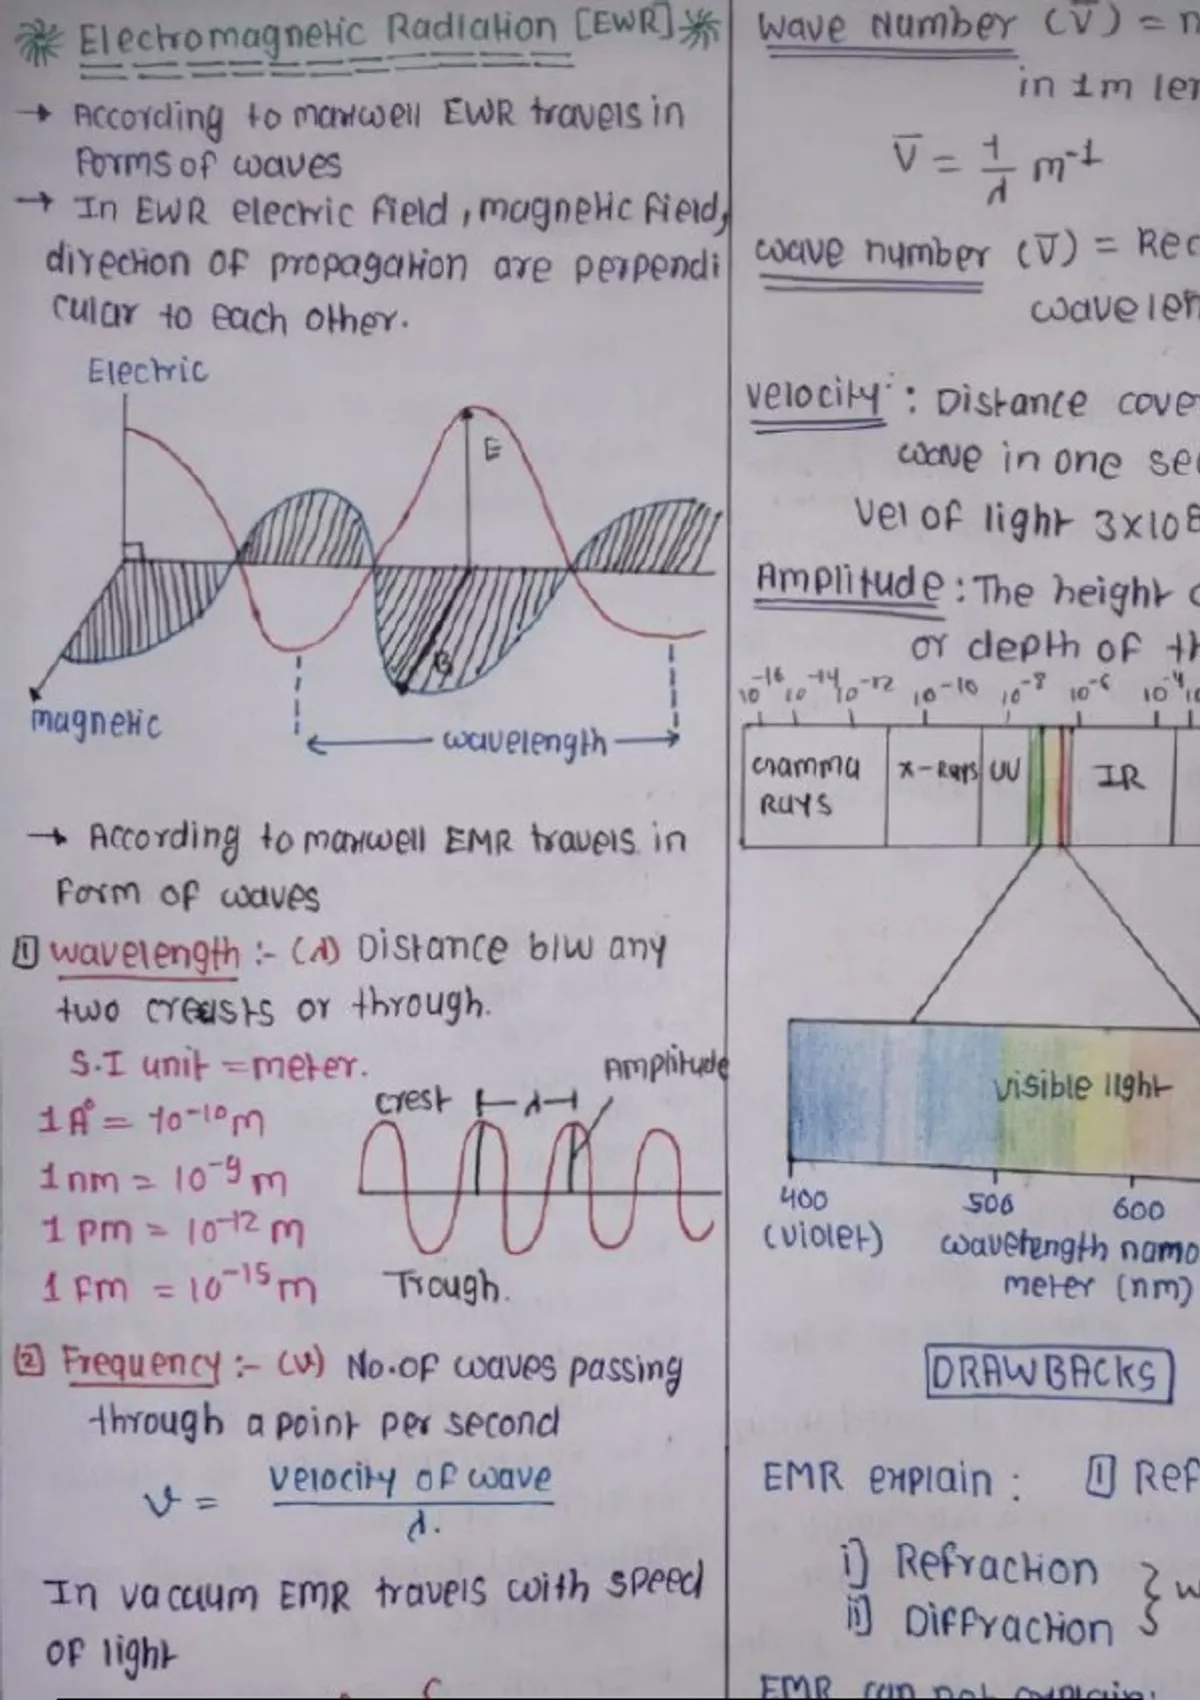 Electromagnetic Radiation [EWR]
→ According to maxwell EWR travels in
forms of waves
→ In EWR electric field, magnetic field,
direction of propagation are perpendi
cular to each other.
Electric
E
B
magnetic
wavelength
→ According to maxwell EMR travels in
form of waves
1 wavelength :- (λ) Distance b/w any
two creasts or through.
S.I unit = meter.
1 A° = 10⁻¹⁰ m
1 nm = 10⁻⁹ m
1 pm = 10⁻¹² m
1 Fm = 10⁻¹⁵ m
crest
λ
Amplitude
Trough.
2 Frequency :- (ν) No. of waves passing
through a point per second
ν = velocity of wave / λ.
In vacuum EMR travels with speed
of light
C
Wave Number (V̅) = n
in 1m len
V̅ = 1/λ m⁻¹
wave number (V̅) = Rec
wavelen
velocity : Distance cove
wave in one se
Vel of light 3×10⁸
Amplitude : The height
or depth of th
10⁻¹⁶ 10⁻¹⁴ 10⁻¹² 10⁻¹⁰ 10⁻⁸ 10⁻⁶ 10⁻⁴ 10
Gramma
Rays
X-Rays
UV
IR
visible light
400 500 600
(violet)
wavelength namo
meter (nm)
DRAWBACKS
EMR explain : 1 Ref
i] Refraction
ii] Diffraction
} w
EMR can not explain: